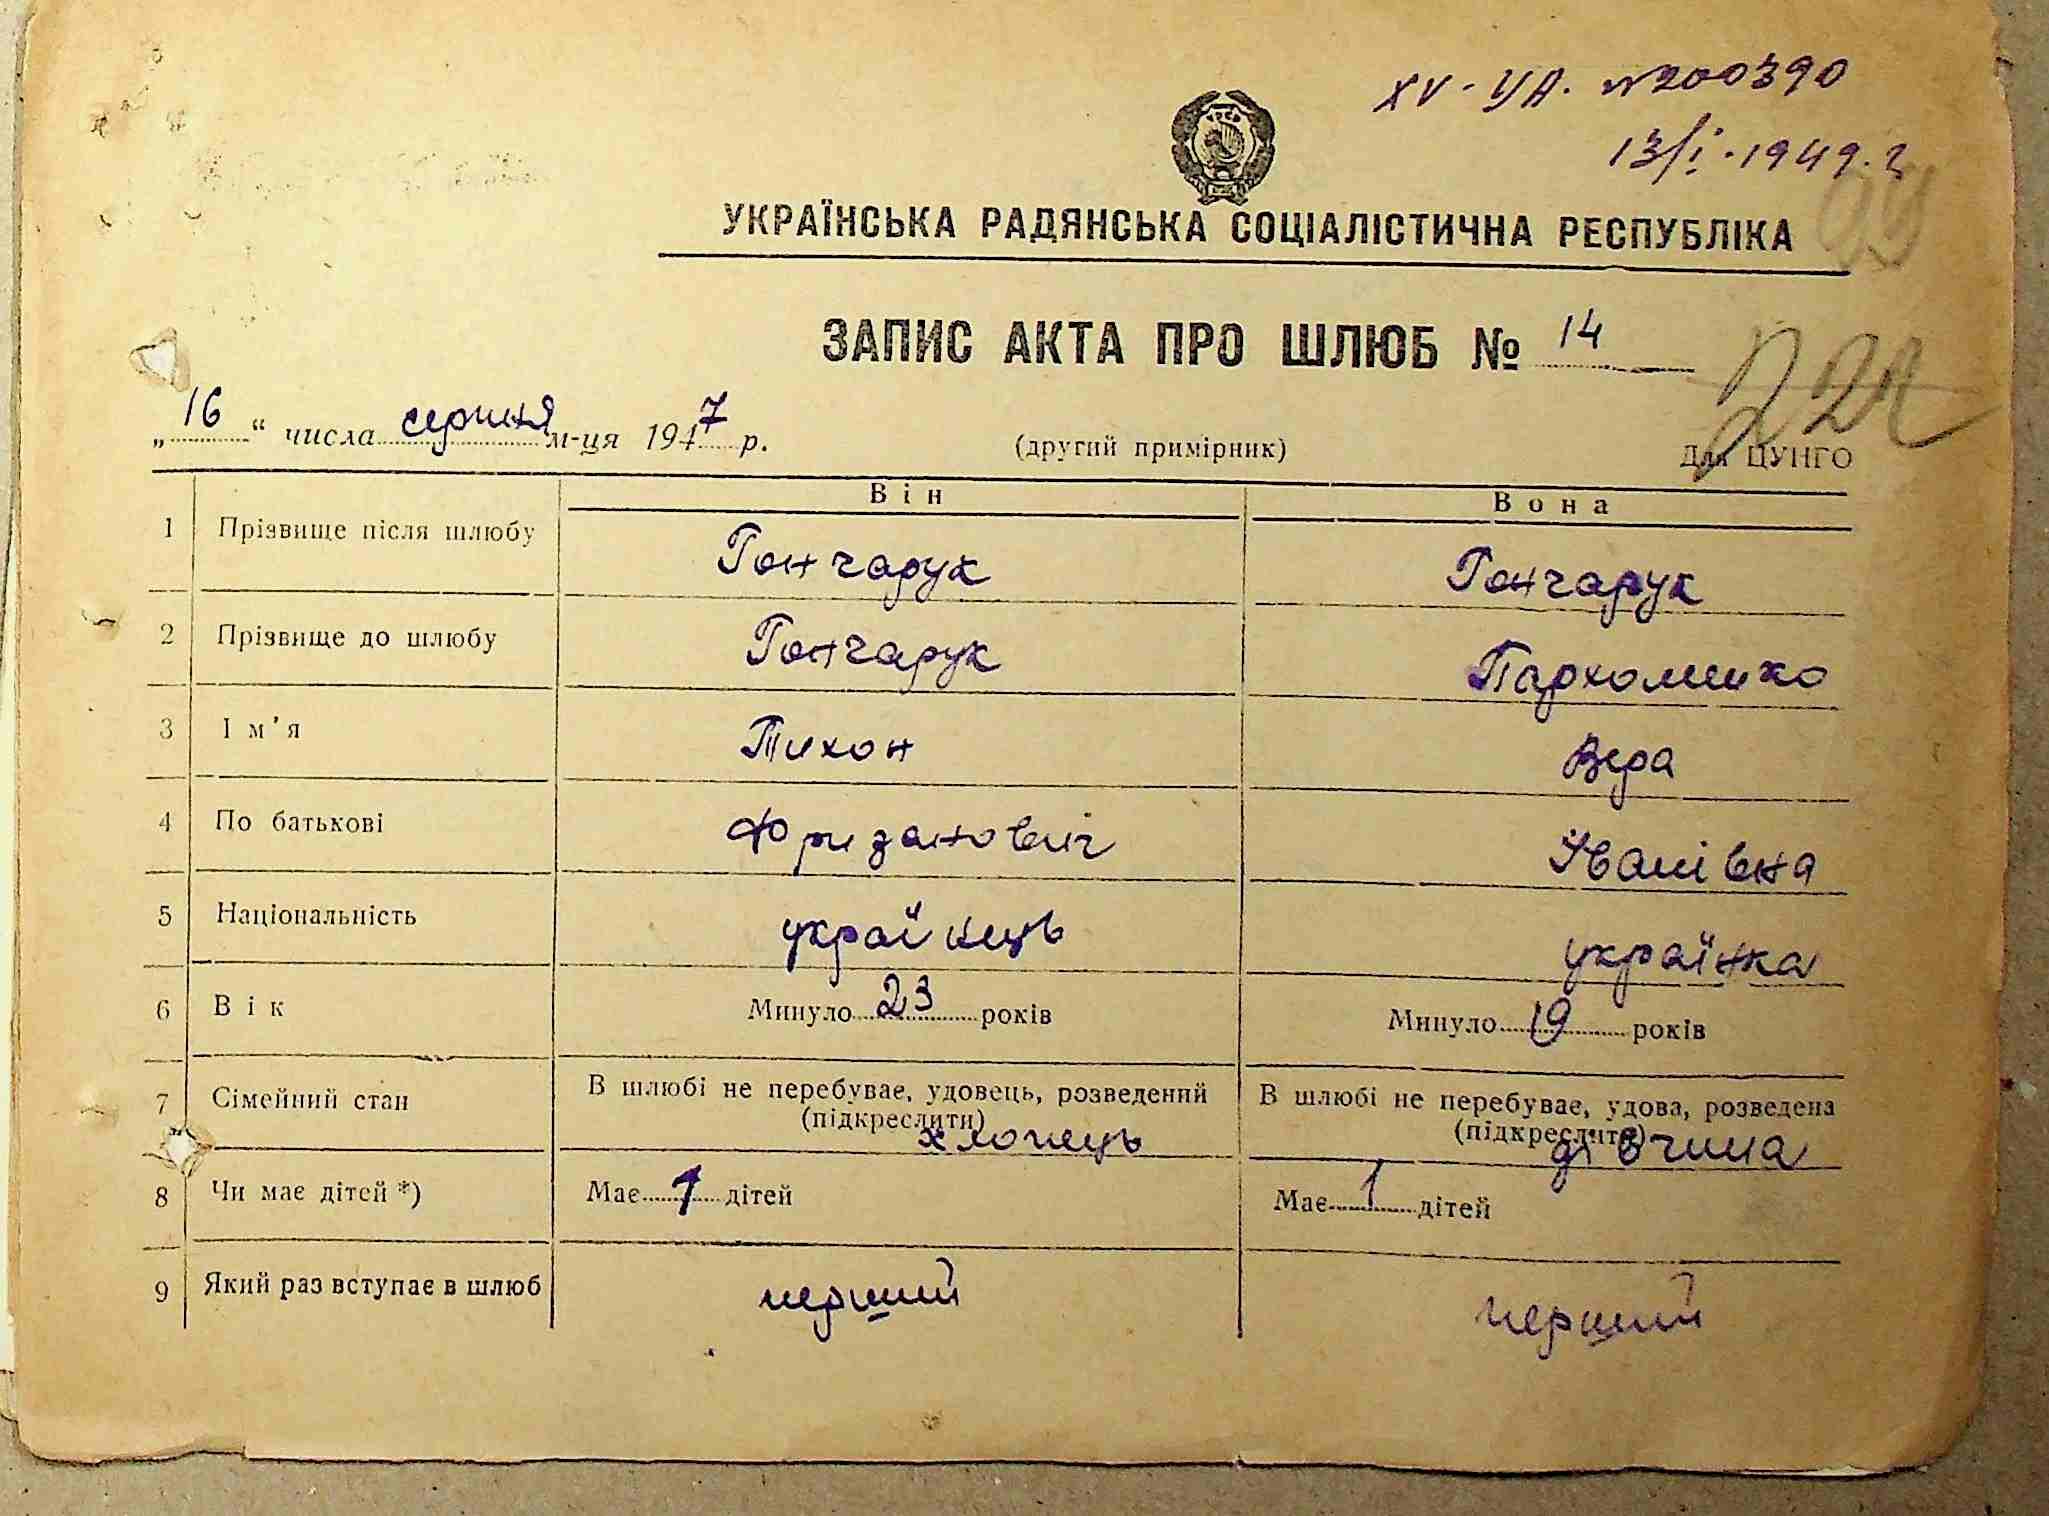 ХV-УА. №200390
13/І-1949.г
УКРАЇНСЬКА РАДЯНСЬКА СОЦІАЛІСТИЧНА РЕСПУБЛІКА
ЗАПИС АКТА ПРО ШЛЮБ № 14
„16“ числа серпня м-ця 1947 р. (другий примірник) Для ЦУНГО
Він Вона
1 Прізвище після шлюбу Гончарук Гончарук
2 Прізвище до шлюбу Гончарук Пархоменко
3 Ім’я Тихон Вера
4 По батькові Фризанович Іванівна
5 Національність українець українка
6 Вік Минуло 23 років Минуло 19 років
7 Сімейний стан В шлюбі не перебуває, удовець, розведений В шлюбі не перебуває, удова, розведена
(підкреслити) (підкреслити)
хлопець дівчина
8 Чи має дітей *) Має 1 дітей Має 1 дітей
9 Який раз вступає в шлюб перший перший